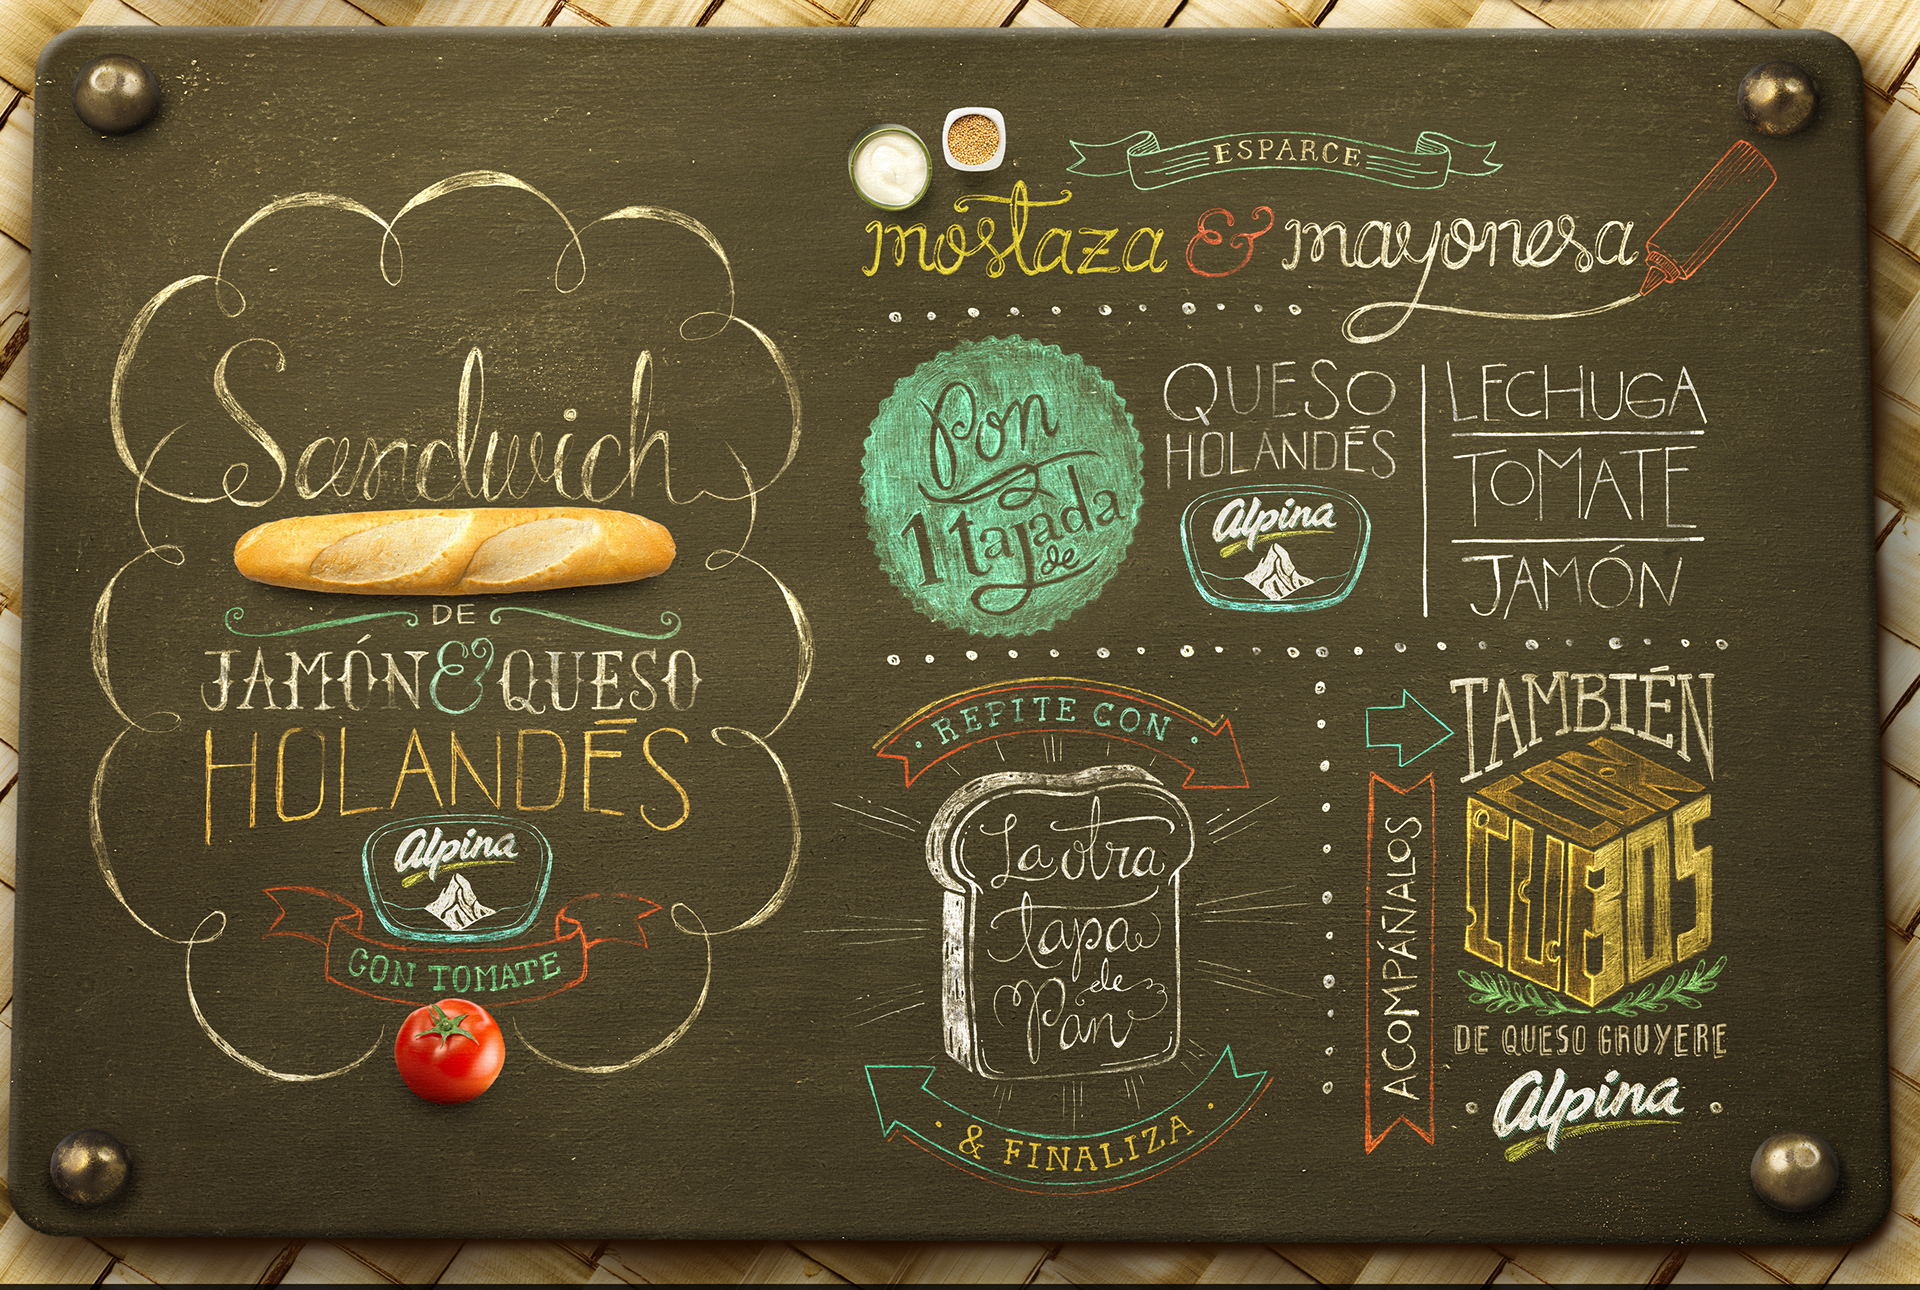 Sandwich
DE
JAMÓN & QUESO
HOLANDÉS
Alpina
CON TOMATE
ESPARCE
mostaza & mayonesa
Pon
1 tajada
de
QUESO
HOLANDÉS
Alpina
LECHUGA
TOMATE
JAMÓN
REPITE CON
La otra
tapa
de
Pan
& FINALIZA
ACOMPÁÑALOS
TAMBIÉN
CON
CUBOS
DE QUESO GRUYERE
Alpina